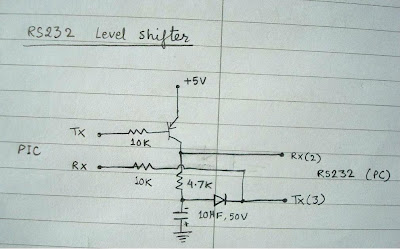 RS232 Level shifter
+5V
TX
10K
PIC
RX(2)
RX
RS232 (PC)
10K
4.7K
TX(3)
10MF, 50V
-
+